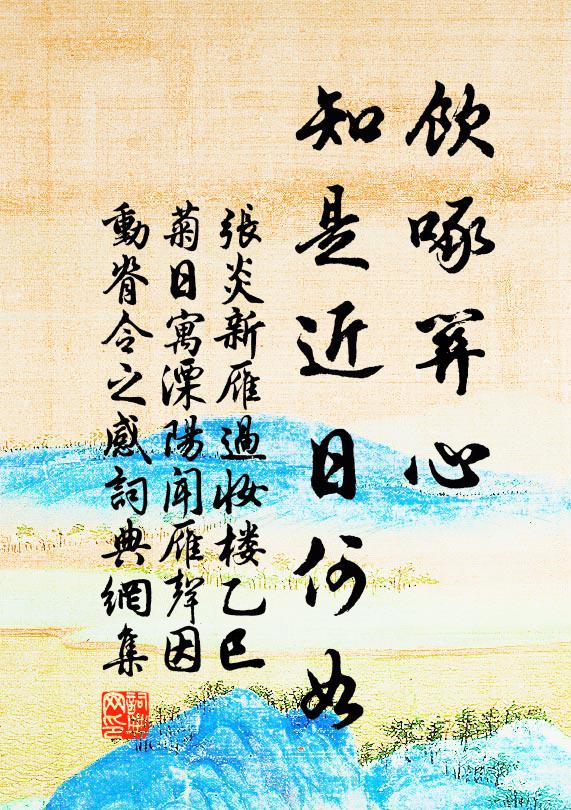 飲啄關心
知是近日何如
張炎新雁過妝楼乙巳
菊日寓溧陽聞雁聲因
動脊令之感詞典網集
詞典
网印